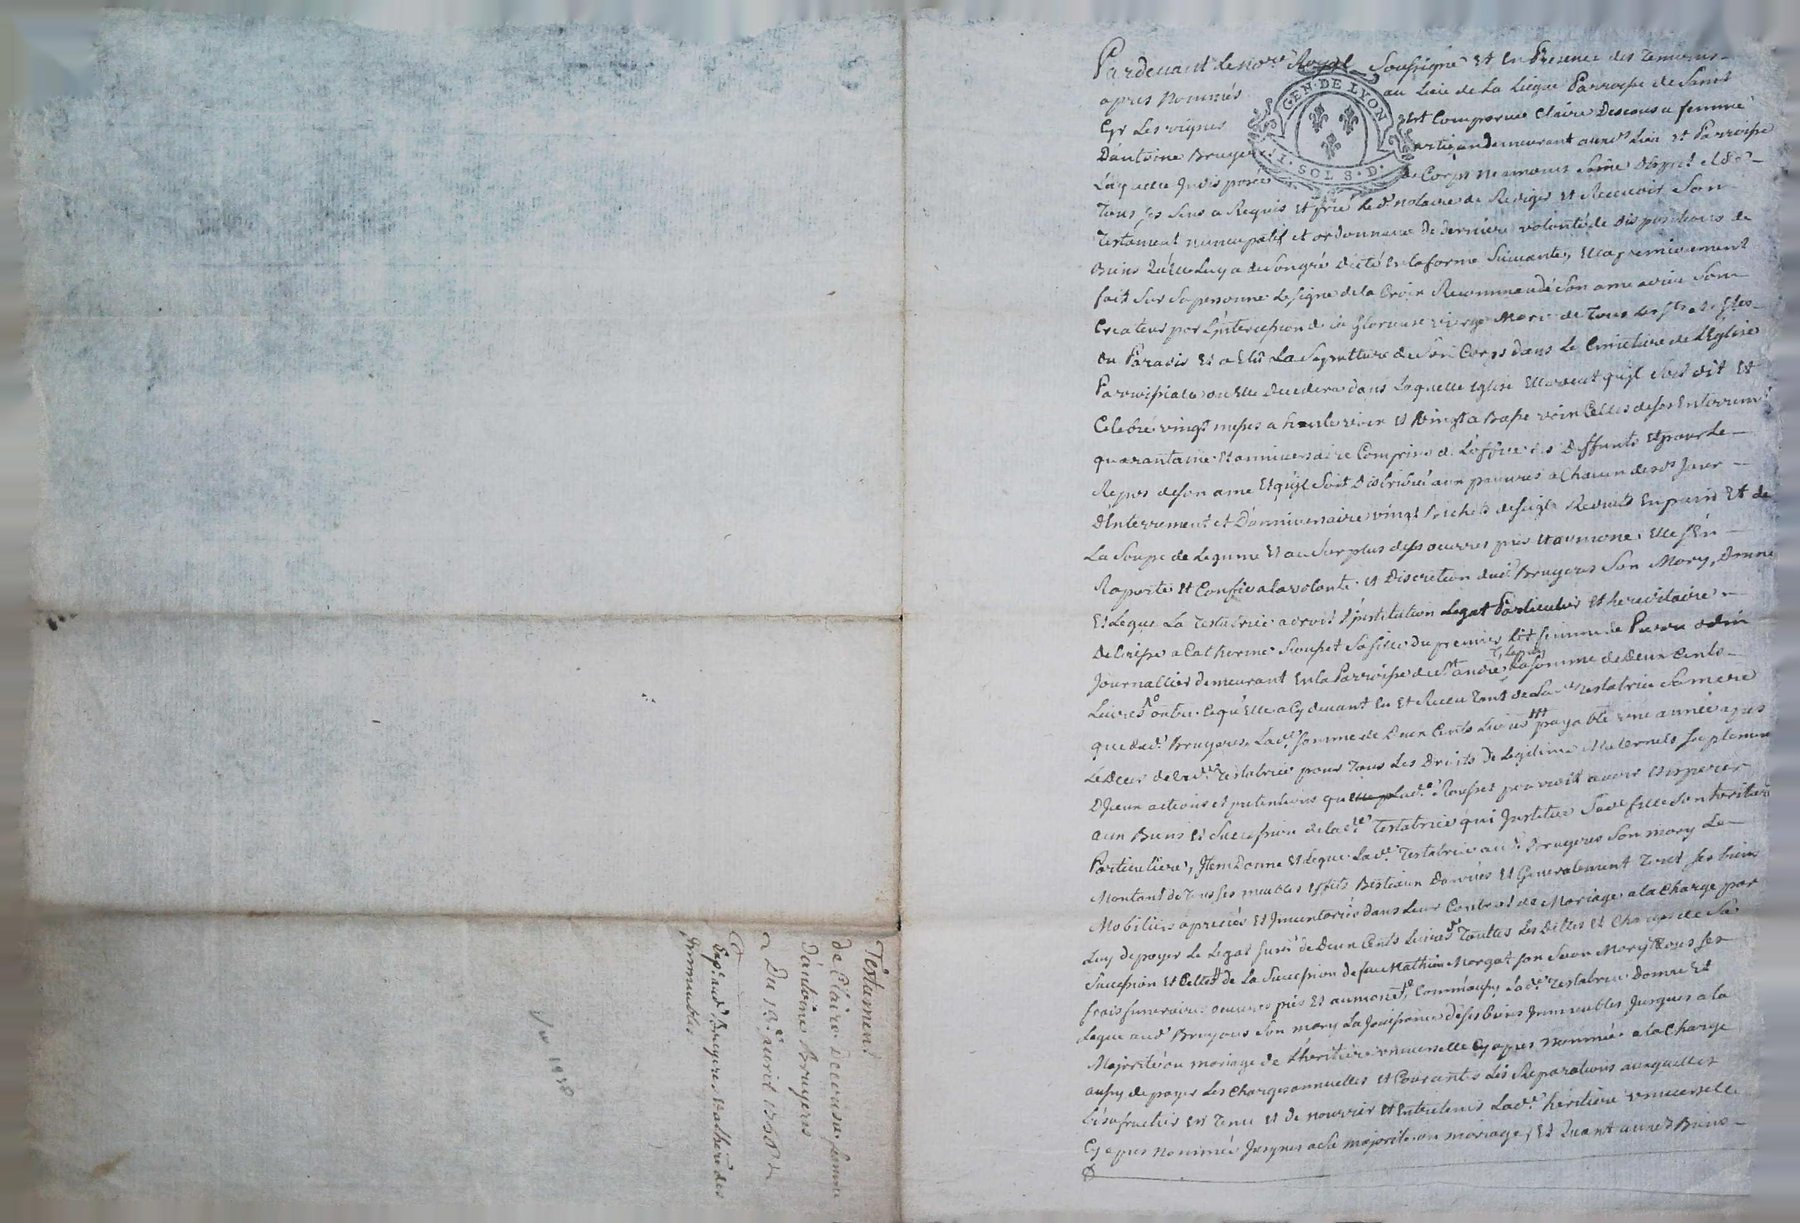 Pardevant le no.re Royal Soussigné Et En Presence des Temoins
apres nommés au Lieu de La Liegue Parroisse de Saint
Cyr Les vignes Est Comparue Claire Descousu femme
D'antoine Bruyere demeurant aud. Lieu et Parroisse
Laquelle Indisposée de Corps neamoins Saine d'Esprit et de
Tous ses sens a Requis Et prié Led. notaire de Rediger Et Recevoir Son
Testament nuncupatif et ordonnance de derniere volonté de dispositions de
Biens qu'elle Luy a de Son gré dicté En la forme Suivante, Ella premierement
fait Sur Sa personne Le Signe de la Croix Recommandé Son ame a dieu Son
Createur par L'intercession de la Glorieuse vierge Marie de Tous Les Sts
du Paradis Et a Elu La Sepulture de Son Corps dans Le Cimetiere de L'Eglise
Parroissiale ou Elle decedera dans Laquelle Eglise Elle veut qu'il Soit dit Et
Celebré vingt messes a haute voix Et vingt a Basse voix Celles de ses Enterrement
quarantaine Et anniversaire Comprises de L'office des Deffunts Et pour Le
Repos de son ame Et qu'il Soit Distribué aux pauvres a Chacun desd. Jour
d'Enterrement et d'anniversaire vingt bichets de seigle Reduits En pain Et de
La Soupe de Legume Et au Surplus de ses oeuvres pies Et aumones, Elle s'En
Raporte Et Confie a la volonté et Discretion dud. Bruyeres Son Mary, Donne
Et Legue La Testatrice a droit d'institution Legat Particulier Et hereditaire
Delaisse a Catherine Sa fille du premier lit femme de Pierre odin
Journallier demeurant En la Parroisse de St andré La Somme de Deux Cents
Livres outre Ce qu'Elle a Cy devant Eu Et Receu Tant de La d. Testatrice Sa mere
que dud. Bruyeres, Lad. Somme de Deux Cents Livres payable une année apres
Le Deces de Lad. Testatrice pour Tous Les Droits de Legitime Maternels Suplement
D'Iceux actions et pretentions que lad. pourroit avoir Et Esperer
aux Biens Et Succession de lad. Testatrice qui Institue Sad. fille Son heritiere
Particuliere, Item Donne Et Legue Lad. Testatrice aud. Bruyeres Son mary Le
Montant de Tous Ses meubles Effets Bestiaux Danrées Et Generalement Tout Ses biens
Mobiliers apreciés Et Inventoriés dans Leur Contrat de Mariage a la Charge par
Luy de payer Le Legat Susd. de Deux Cents Livres Touttes Les Dettes Et Charges de Sa
Succession Et Celles de La Succession de feu Mathieu Morgat Son Mary Tous Ses
frais funeraires oeuvres pies Et aumones, Comm'aussy Lad. Testatrice Donne Et
Legue aud. Bruyeres Son mary La Jouissance de Ses biens Immeubles Jusques a la
Majorité ou mariage de L'heritiere universelle Cy apres nommée a la Charge
aussy de payer Les Charges annuelles et Courantes Les Reparations auxquelles
L'usufruitier Est Tenu et de nourrir Et Entretenir Lad. heritiere universelle
Cy apres nommée Jusques a Sa majorité ou mariage, Et Quant aux Biens
GEN. DE LYON
I. SOL 8. D.
Testament
de Claire Descousu femme
D'antoine Bruyeres
Du 18.e avril
Bruyere
Immeubles